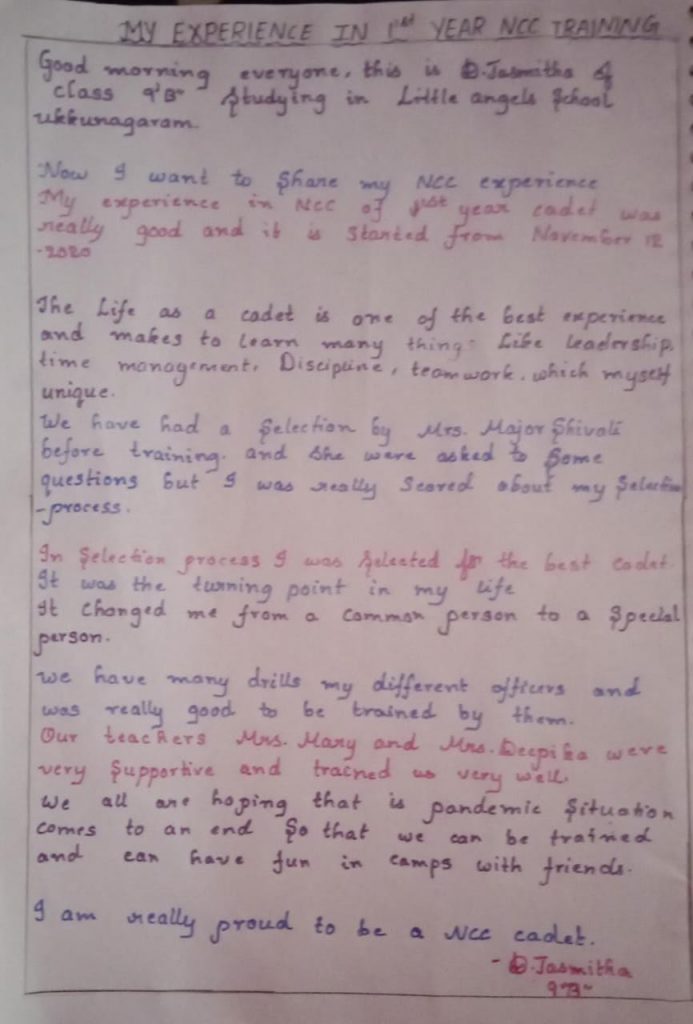 MY EXPERIENCE IN 1st YEAR NCC TRAINING
Good morning everyone, this is D.Jasmitha of
class 9"B" Studying in Little angels School
ukkunagaram.
Now I want to Share my NCC experience
My experience in NCC of first year cadet was
really good and it is started from November 12
-2020
The Life as a cadet is one of the best experience
and makes to learn many thing: Like leadership,
time management, Discipline, teamwork. which myself
unique.
We have had a Selection by Mrs. Major Shivali
before training. and she were asked to Some
questions but I was really Scared about my Selection
-process.
In Selection process I was Selected for the best cadet.
It was the turning point in my life
It changed me from a common person to a Special
person.
we have many drills my different officers and
was really good to be trained by them.
Our teachers Mrs. Mary and Mrs. Deepika were
very Supportive and trained us very well.
We all are hoping that is pandemic Situation
comes to an end So that we can be trained
and can have fun in camps with friends.
I am really proud to be a NCC cadet.
- D.Jasmitha
9"B"